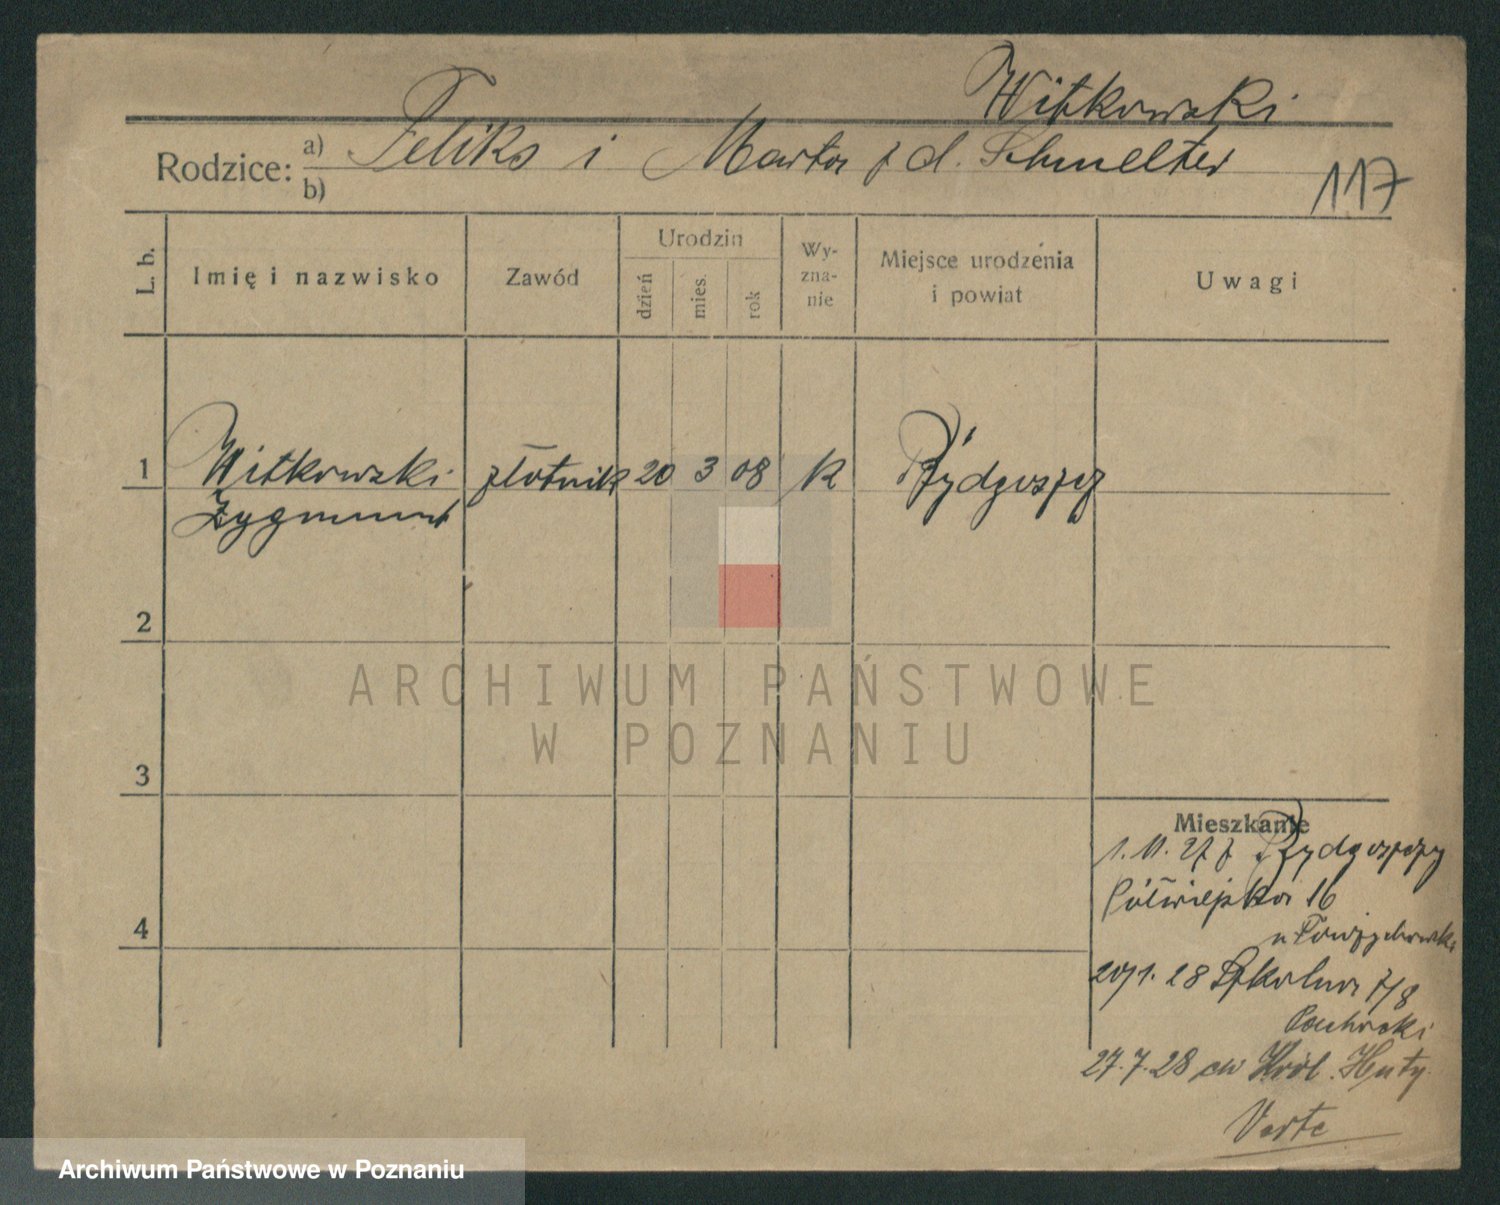 Witkowski
Rodzice: a) Feliks i Marta z d. Schmelter
b)
117
L. b.
Imię i nazwisko
Zawód
Urodzin
dzień
mies.
rok
Wy-
zna-
nie
Miejsce urodzenia
i powiat
Uwagi
1 Witkowski złotnik 20 3 08 K Bydgoszcz
Zygmunt
2
3
4
Mieszkanie
1. 11. 27 z Bydgoszczy
Półwiejska 16
u
20/1. 28 Szkolna 7/8
27. 7. 28 do Król. Huty
Verte
ARCHIWUM PAŃSTWOWE
W POZNANIU
Archiwum Państwowe w Poznaniu